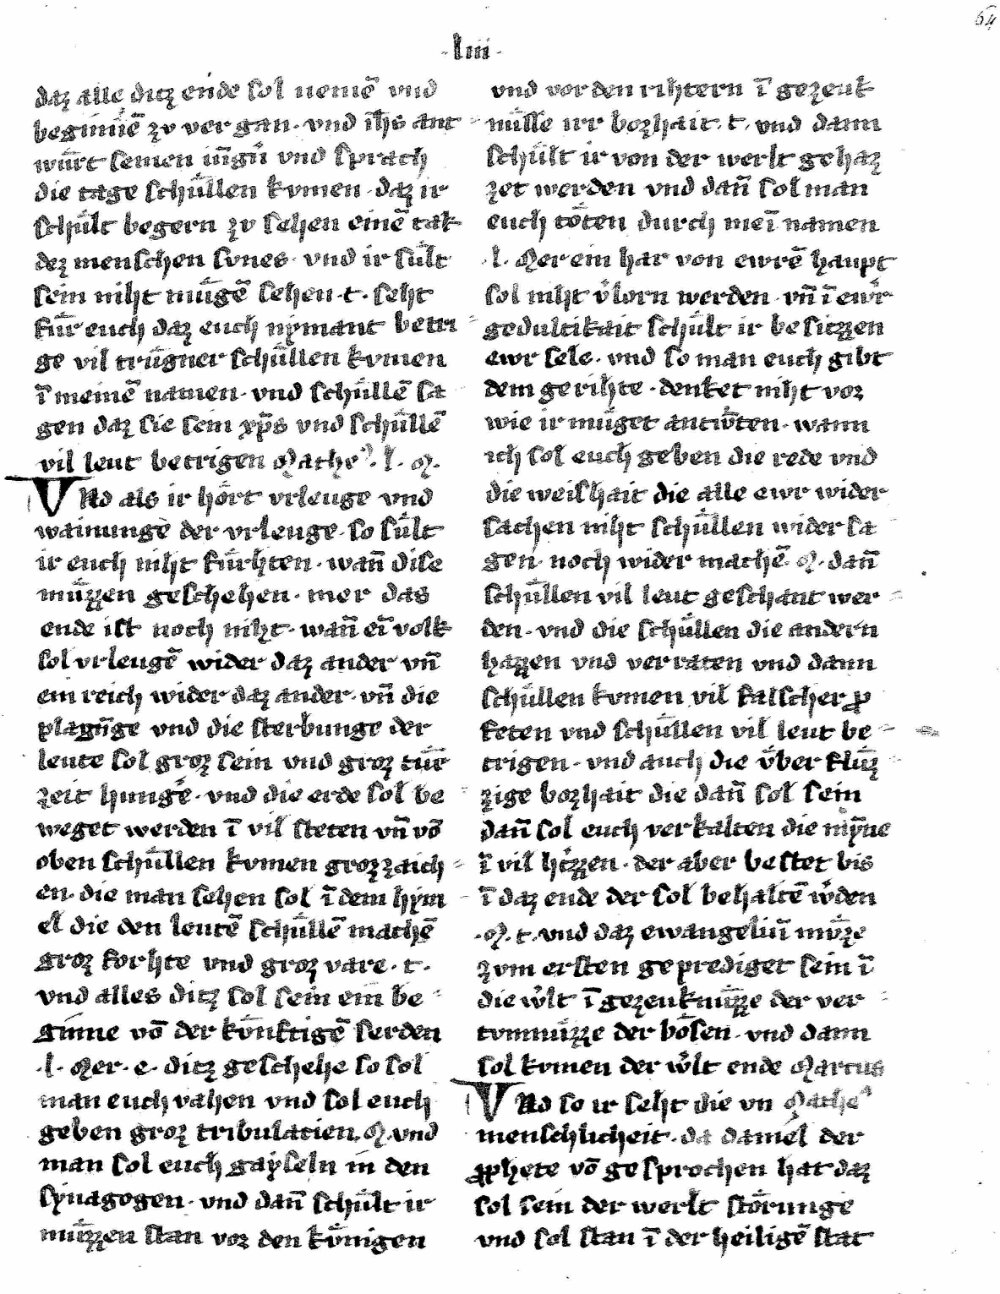 64
·liii·
daz alle ditz ende sol nemē vnd
beginnē zv ver gan · vnd ih̄s ant
wūrt seinen iūgn̄ vnd sprach
die tage schūllen kvmen · daz ir
schūlt begern zv sehen einē tak
dez menschen svnes · vnd ir sūlt
sein niht mūgē sehen · t · seht
fūr euch daz euch nymant betri
ge vil trūgner schūllen kvmen
ī meinē namen · vnd schūllē sa
gen daz sie sein xp̄s vnd schūllē
vil leut betrigen Mathe⁹ · l · M ·
VNd als ir hōrt vrleuge vnd
wainunge der vrleuge · so sūlt
ir euch niht fūrhten · wan̄ dise
mūzzen geschehen · mer das
ende ist noch niht · wan̄ eī volk
sol vrleugē wider daz ander vn̄
ein reich wider daz ander · vn̄ die
plagn̄ge vnd die sterbunge der
leute sol groz sein vnd groz tūe
zeit hungē · vnd die erde sol be
weget werden ī vil steten vn̄ vō
oben schūllen kvmen groz zaich
en · die man sehen sol ī dem hym
el die den leutē schūllē machē
groz forhte vnd groz vare · t ·
vnd alles ditz sol sein ein be
ginne vō der kūnftigē serden
· l · Mer · e · ditz geschehe so sol
man euch vahen vnd sol euch
geben groz tribulatien · M · vnd
man sol euch gayseln in den
synagogen · vnd dan̄ schūlt ir
mūzzen stan vor den kūnigen
vnd vor den rihtern ī gezeuk
nūsse irr bozhait · t · vnd dann
schūlt ir von der werlt gehaz
zet werden vnd dan̄ sol man
euch tōten durch meī namen
· l · Mer ein har von ewrē haupt
sol niht v̓lorn werden · vn̄ ī ewr̓
gedultikait schūlt ir besitzzen
ewr sele · vnd so man euch gibt
dem gerihte · denket niht vor
wie ir mūget antw̓ten · wann
ich sol euch geben die rede vnd
die weishait die alle ewr wider
sachen niht schūllen wider sa
gen · noch wider machē · M · dan̄
schūllen vil leut geschant wer
den · vnd die schūllen die andern
hazzen vnd verraten vnd dann
schūllen kvmen vil falscher ꝓ
feten vnd schūllen vil leut be
trigen · vnd auch die ūber flūz
zige bozhait die dan̄ sol sein
dan̄ sol euch verkalten die mȳne
ī vil h̓tzzen · der aber bestet bis
ī daz ende der sol behaltē w̓den
· M · t · vnd daz ewangeliū mūze
zvm ersten geprediget sein ī
die w̓lt ī gezeuknūzze der ver
tvmnūzze der bōsen · vnd dann
sol kvmen der w̓lt ende Marcus
VNd so ir seht die vn Mathe⁹
menschlicheit · da daniel der
ꝓphete vō gesprochen hat daz
sol sein der werlt stōrunge
vnd sol stan ī der heiligē stat